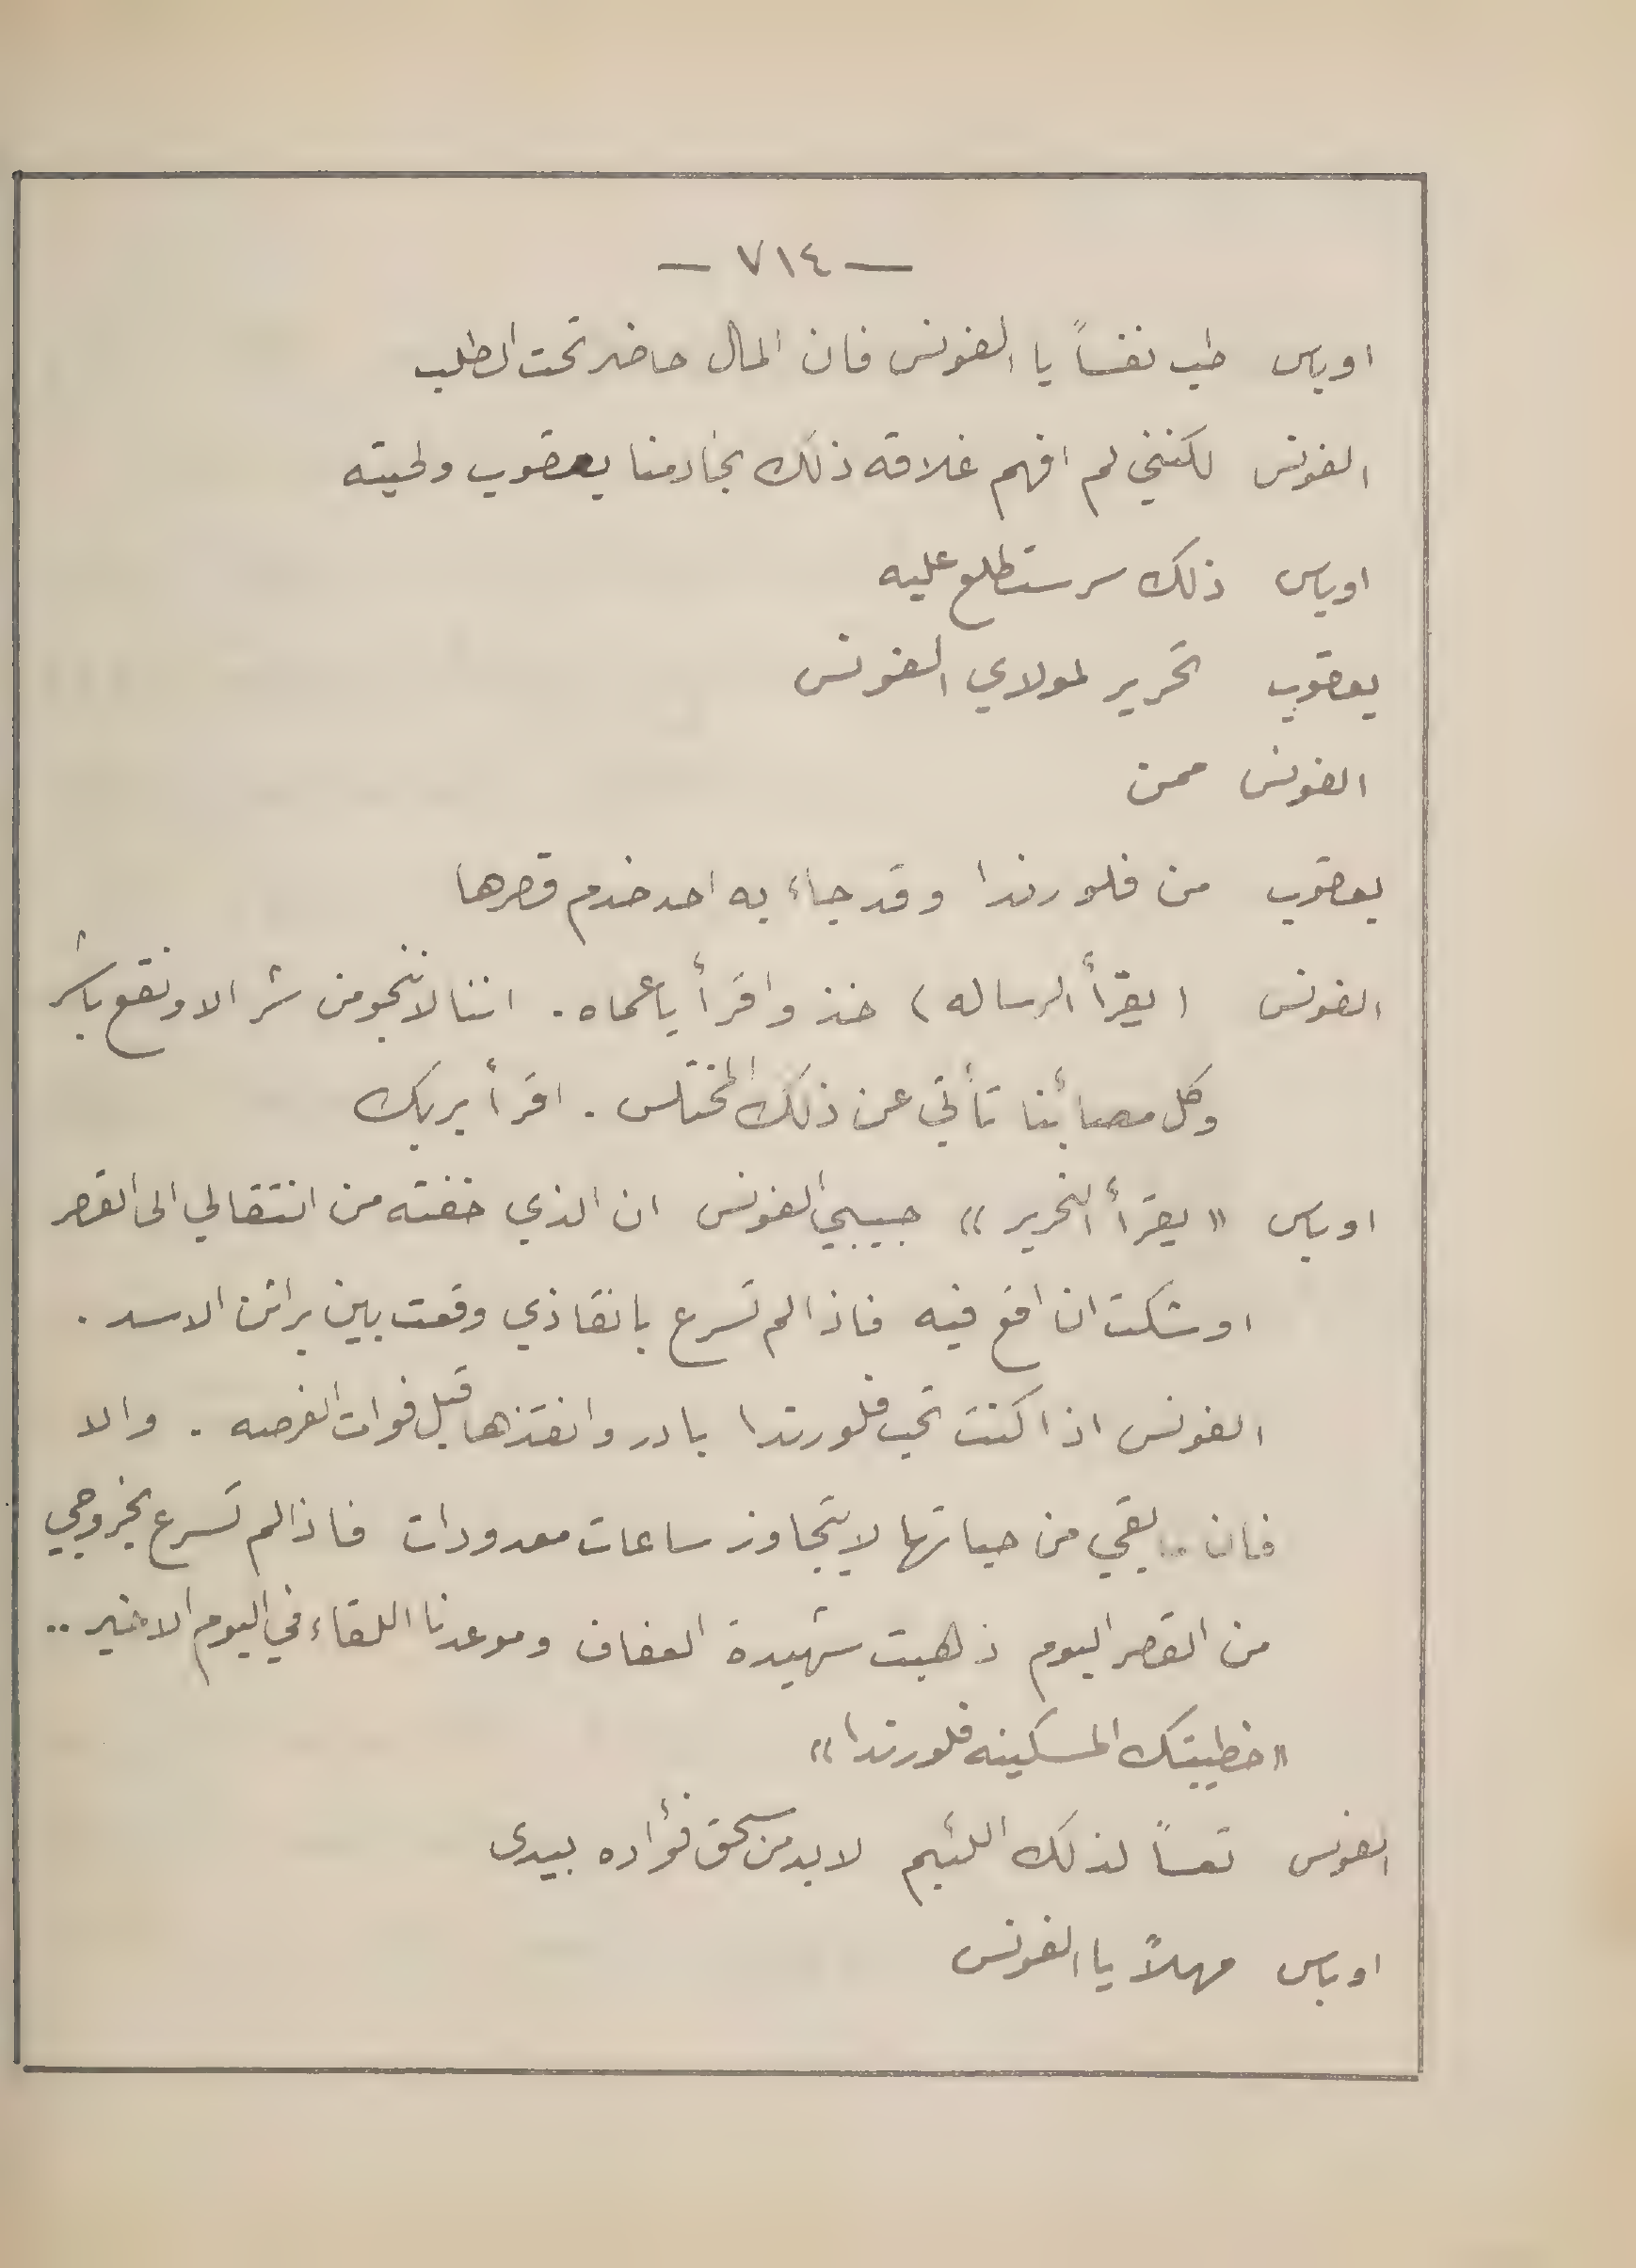 — ٧١٤ —
اوباس طب نفساً يا الفونس فان المال حاضر تحت الطلب
الفونس لكنني لم افهم علاقة ذلك بخادمنا يعقوب ولحيته
اوباس ذلك سر ستطلع عليه
يعقوب تحرير لمولاي الفونس
الفونس ممن
يعقوب من فلورندا وقد جاء به احد خدم قصرها
الفونس (يقرأ الرساله) خذ واقرأ يا عماه . اننا لا ننجو من شر الا ونقع باشر
وكل مصائبنا تأتي عن ذلك المختلس . اقرأ بربك
اوباس « يقرأ التحرير » حبيبي الفونس ان الذي خفته من انتقالي الى القصر
اوشكت ان اقع فيه فاذا لم تسرع بانقاذي وقعت بين براثن الاسد .
الفونس اذا كنت تحب فلورندا بادر وانقذها قبل فوات الفرصه . والا
فان ما بقي من حياتها لا يتجاوز ساعات معدودات فاذا لم تسرع بخروجي
من القصر اليوم ذهبت شهيدة العفاف وموعدنا اللقاء في اليوم الاخير ..
« خطيبتك المسكينه فلورندا »
الفونس تعساً لذلك اللئيم لا بد من سحق فؤاده بيدى
اوباس مهلاً يا الفونس